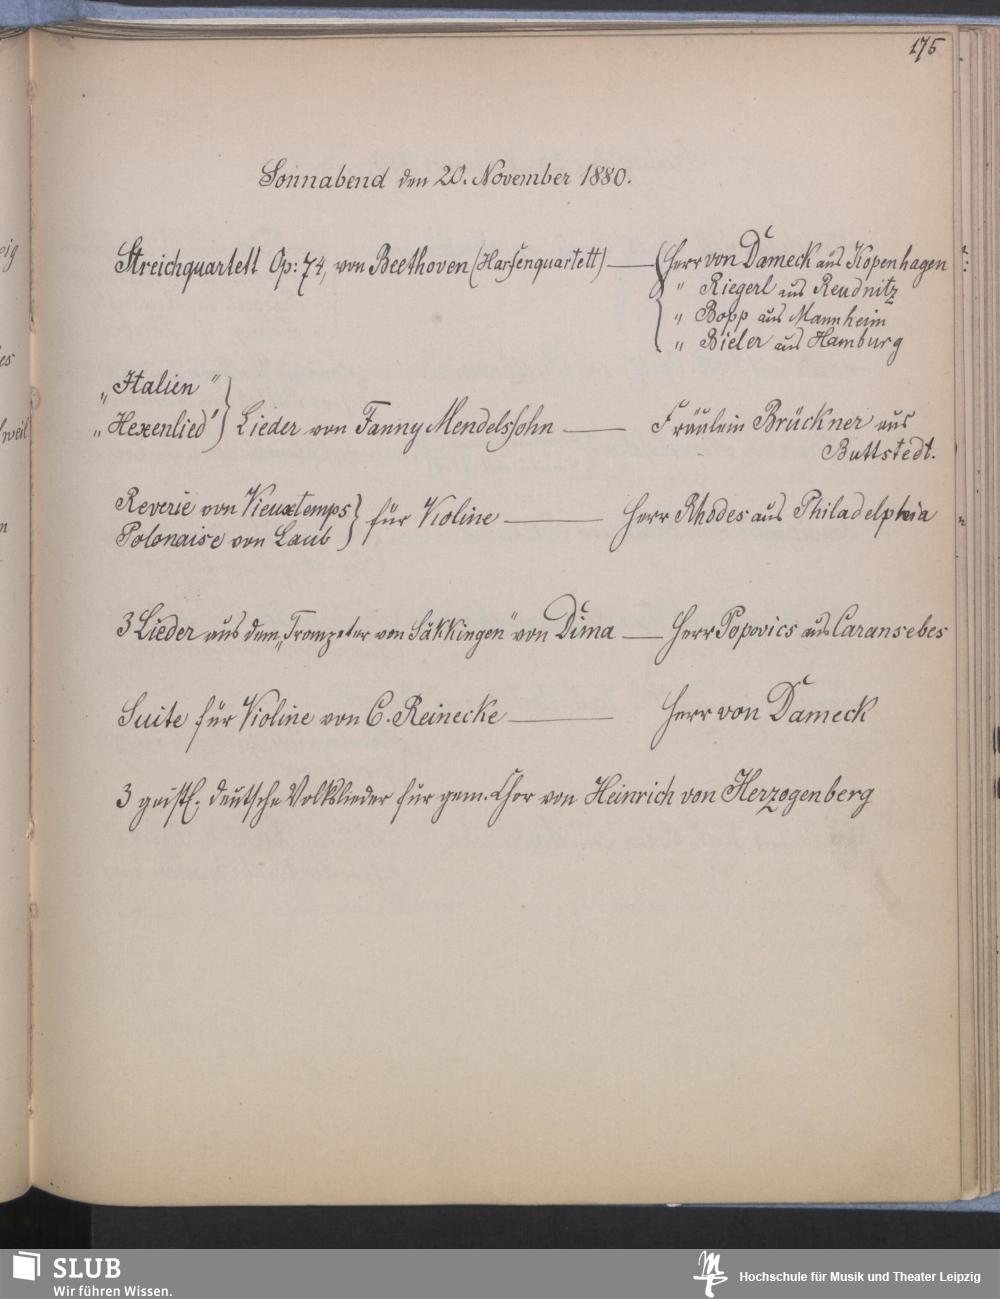 176
Sonnabend den 20. November 1880.
Streichquartett Op: 74, von Beethoven (Harfenquartett) — Herr von Dameck aus Kopenhagen
" Riegerl aus Reudnitz
" Bopp aus Mannheim
" Bieler aus Hamburg
„Italien"
„Hexenlied" Lieder von Fanny Mendelssohn — Fräulein Brückner aus
Buttstedt.
Reverie von Vieuxtemps
Polonaise von Laub für Violine — Herr Rhodes aus Philadelphia
3 Lieder aus dem „Trompeter von Säkkingen" von Dima — Herr Popovics aus Caransebes
Suite für Violine von C. Reinecke — Herr von Dameck
3 geistl. deutsche Volkslieder für gem. Chor von Heinrich von Herzogenberg
SLUB
Wir führen Wissen.
Hochschule für Musik und Theater Leipzig